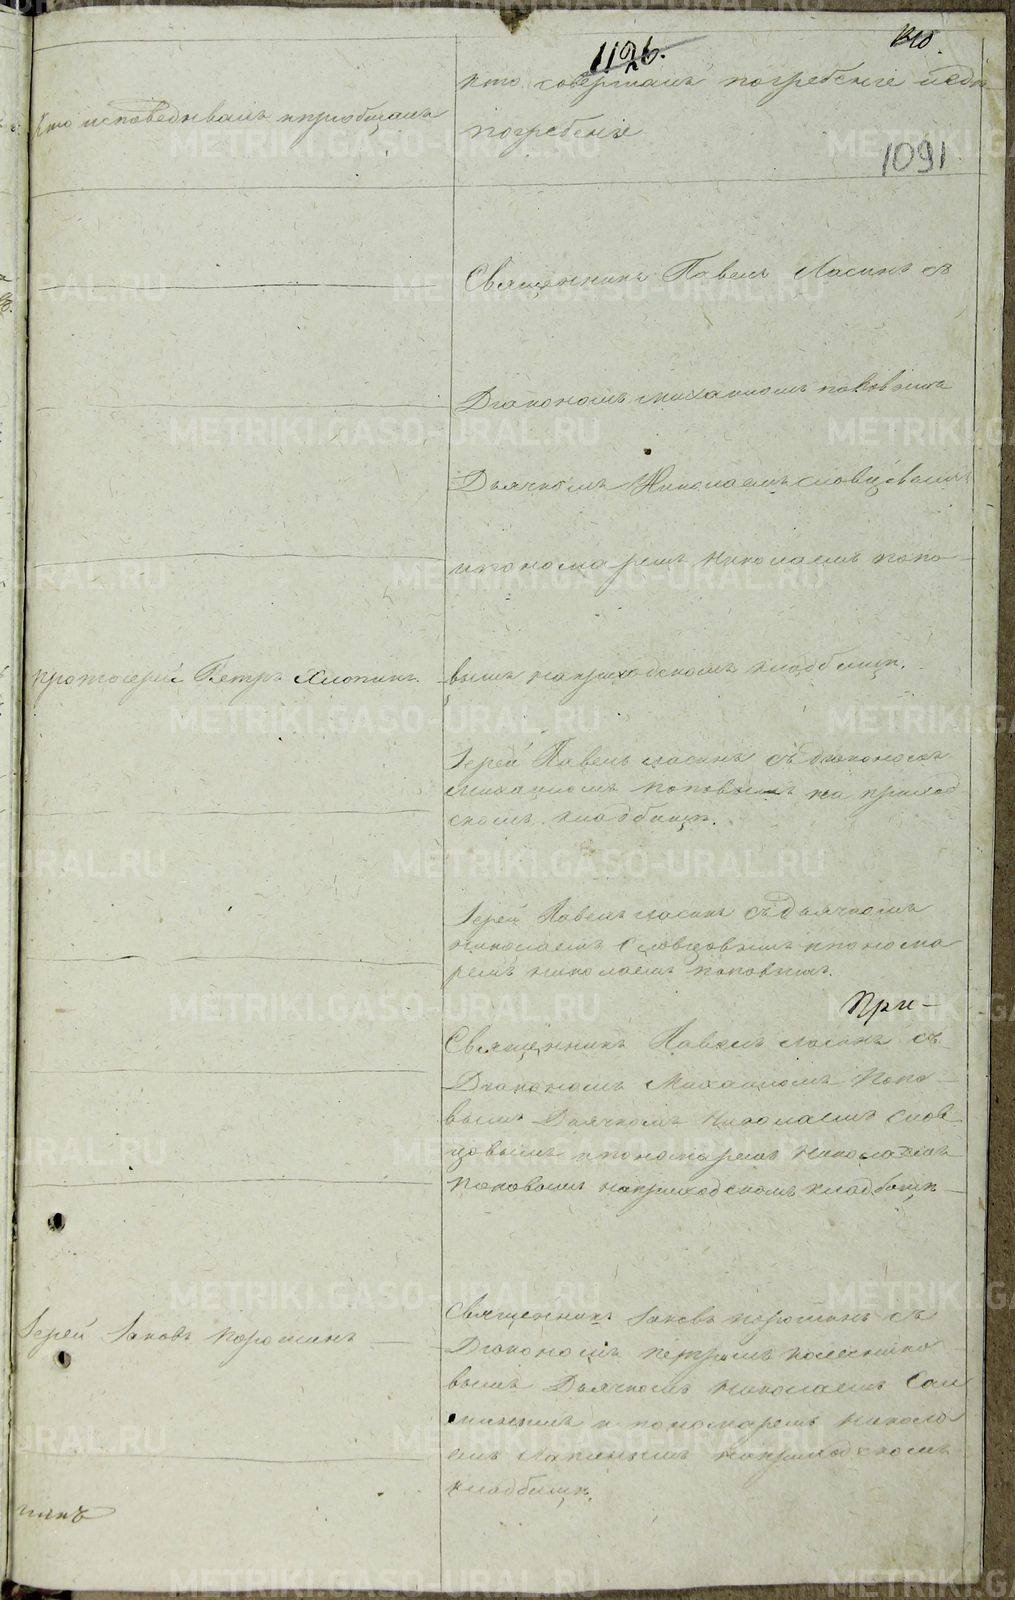 1126.
1310.
Кто исповедывалъ и приобщалъ
кто совершалъ погребенiе и гдѣ
погребены
1091
Священникъ Павелъ Ласинъ съ
Дiакономъ Михаиломъ Поповымъ
Дьячкомъ Николаемъ Словцовымъ
и пономаремъ Николаемъ Попо-
Протоiерей Петръ Хлопинъ.
вымъ на приходскомъ кладбищѣ.
Iерей Павелъ Ласинъ съ дiакономъ
Михаиломъ Поповымъ на приход
скомъ кладбищѣ.
Iерей Павелъ Ласинъ съ дьячкомъ
Николаемъ Словцовымъ и понома
ремъ Николаемъ Поповымъ.
При-
Священникъ Павелъ Ласинъ съ
Дiакономъ Михаиломъ Попо-
вымъ Дьячкомъ Николаемъ Слов
цовымъ и пономаремъ Николаемъ
Поповымъ на приходскомъ кладбищѣ
Iерей Iаковъ Порошинъ
Священникъ Iаковъ Порошинъ съ
Дiакономъ Петромъ Колеснико
вымъ Дьячкомъ Николаемъ
и пономаремъ Никола
емъ Лапинымъ на приходскомъ
кладбищѣ.
METRIKI.GASO-URAL.RU